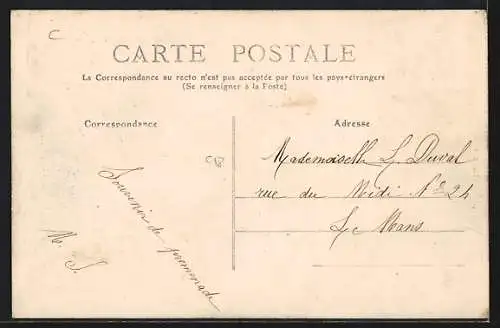 C
CARTE POSTALE
La Correspondance au recto n'est pas acceptée par tous les pays-étrangers
(Se renseigner à la Poste)
Correspondance
Adresse
CB
Souvenir de promenade
M. S.
Mademoiselle L. Duval
rue du Midi Nº 24
Le Mans